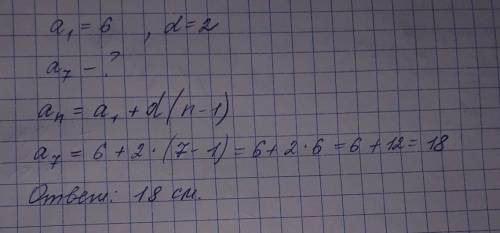 a₁ = 6 , d = 2
a₇ - ?
aₙ = a₁ + d(n-1)
a₇ = 6 + 2 · (7-1) = 6 + 2 · 6 = 6 + 12 = 18
Ответ: 18 см.